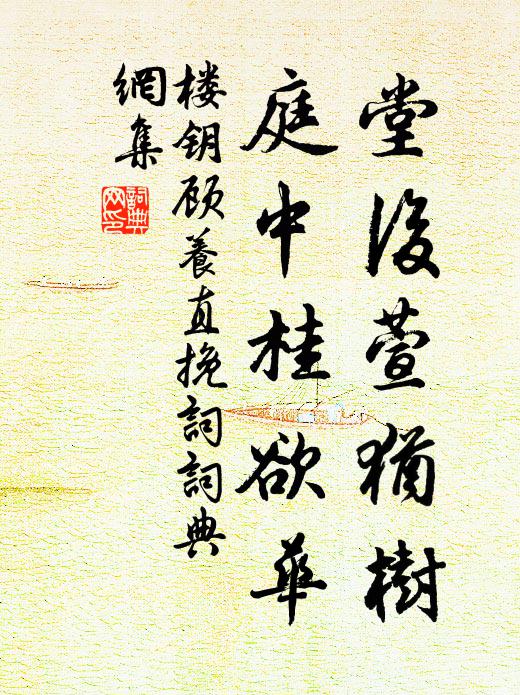 堂後萱猶樹
庭中桂欲華
楼钥顾養直挽詞詞典
網集
詞典網印